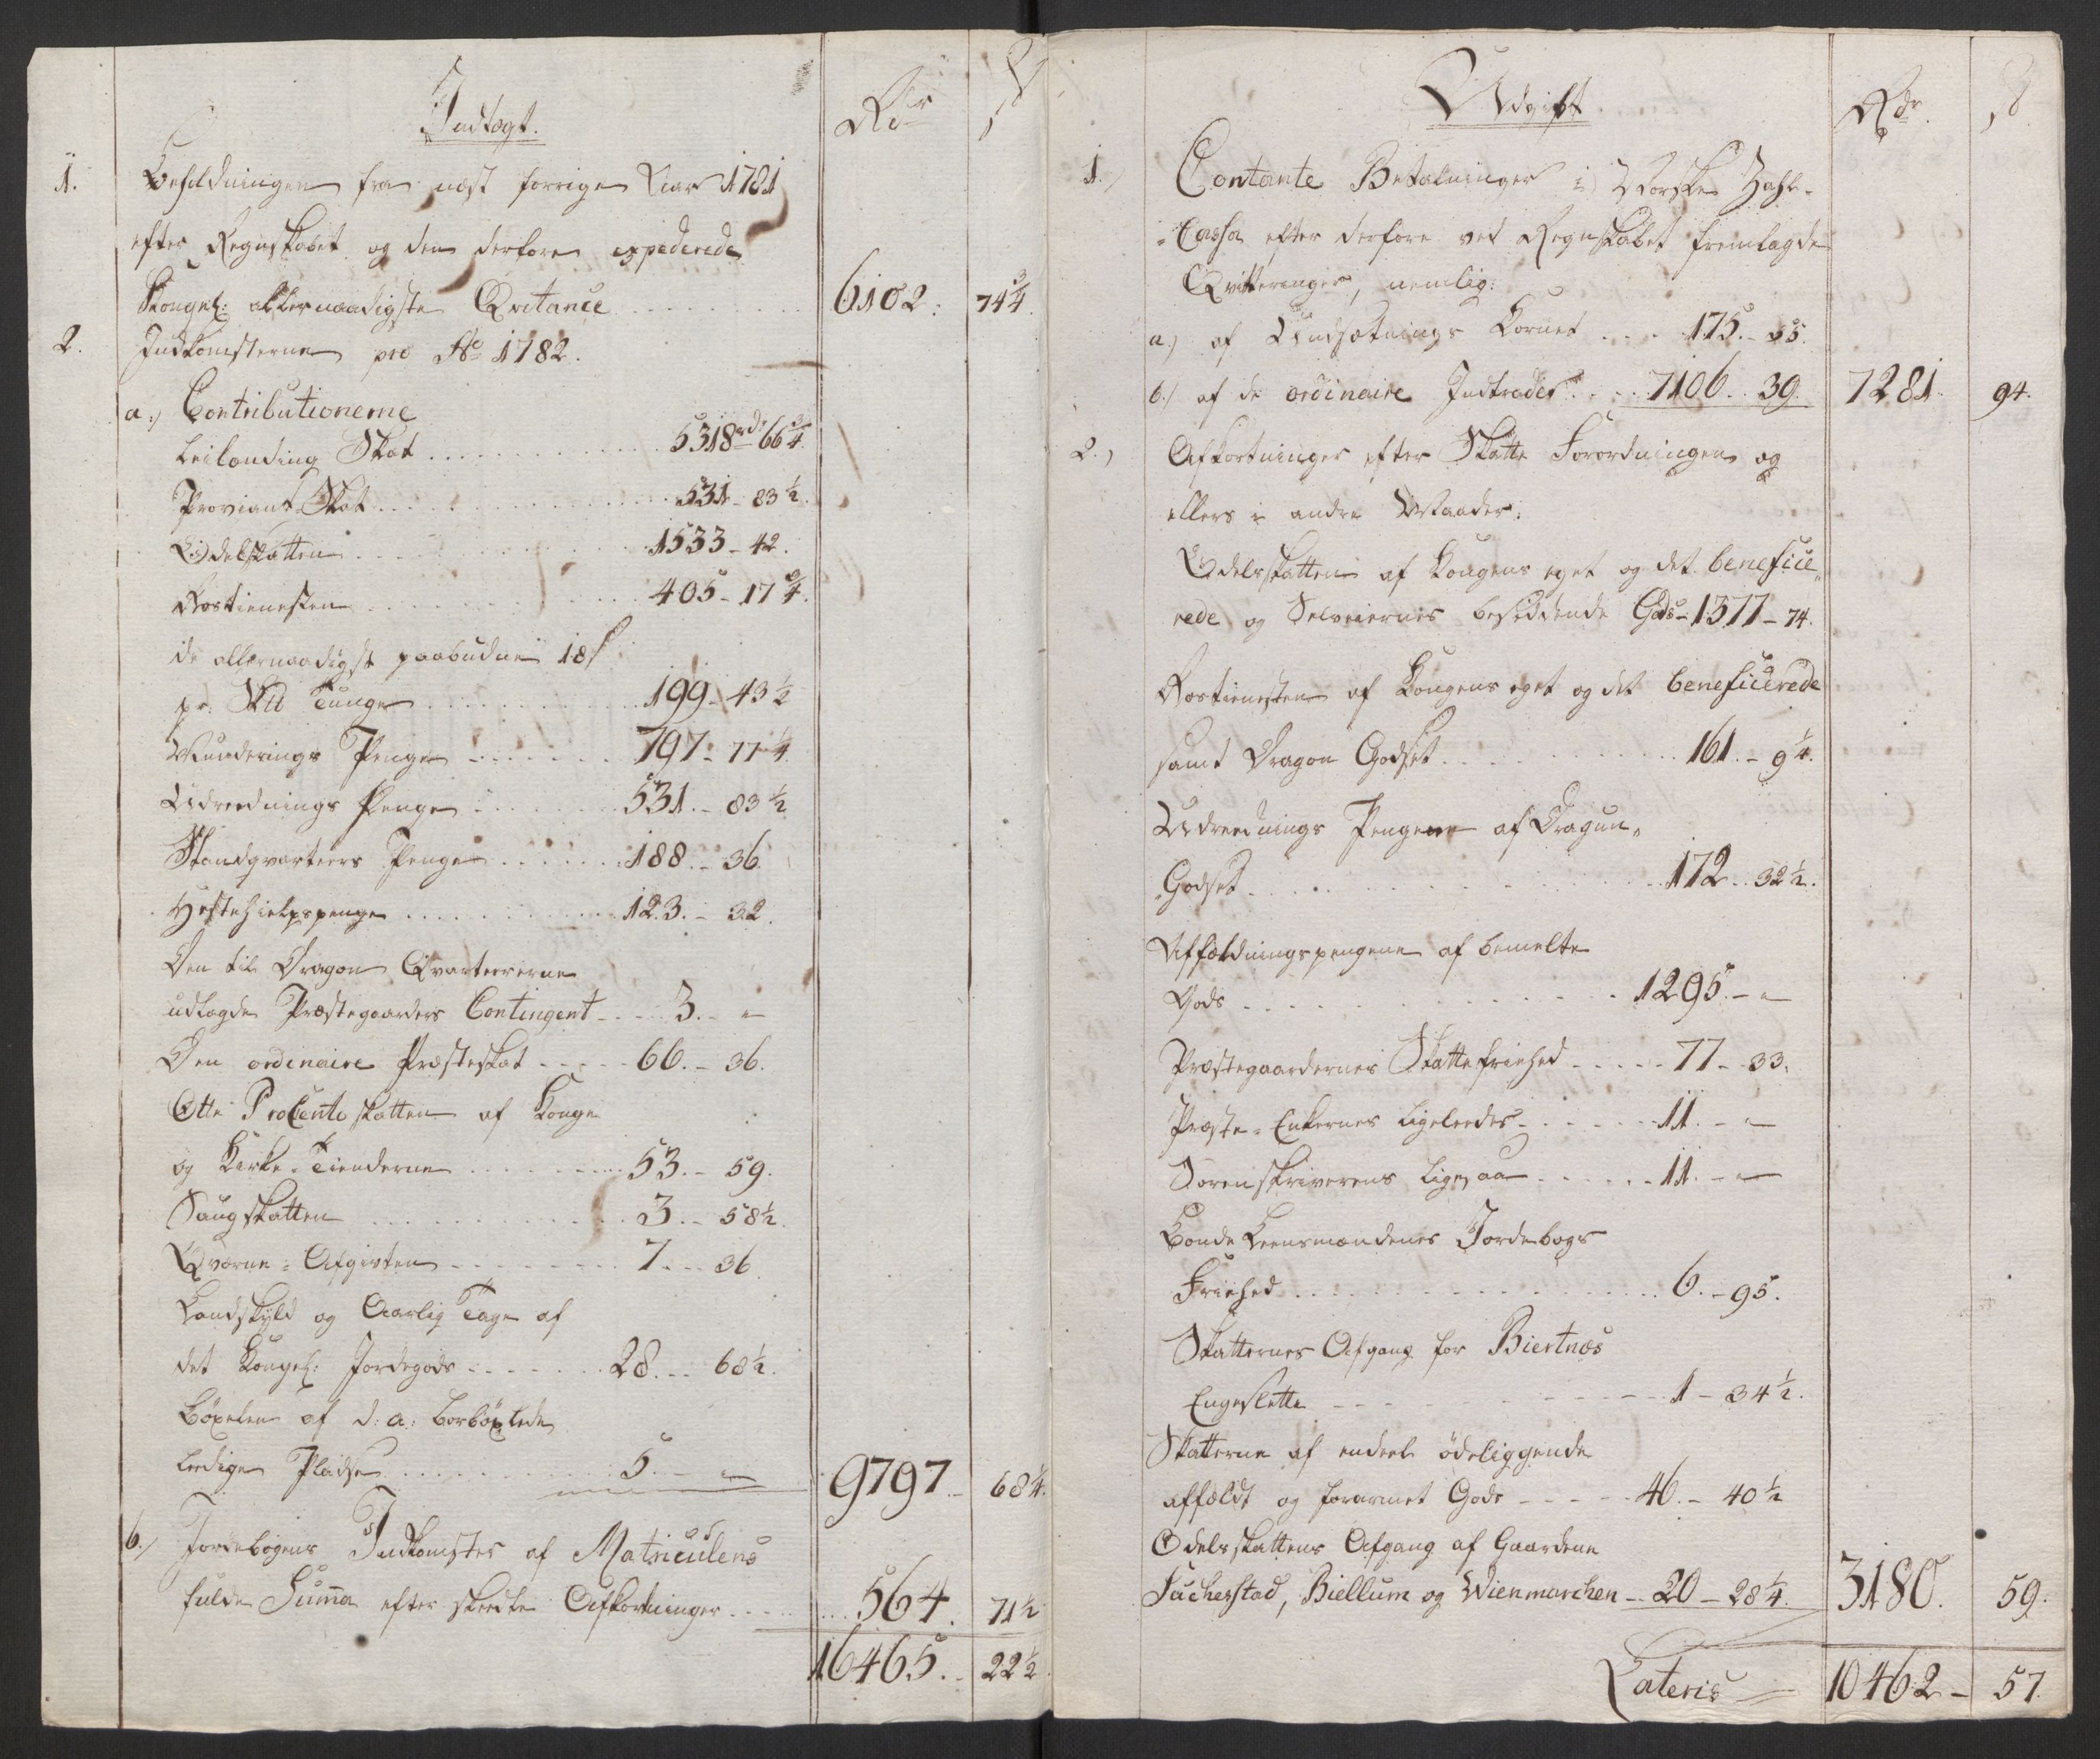 Indtægt.
Rdr ſ
1. Beholdningen fra næst forrige Aar 1781
efter Regnskabet og den derfore expederede
Kongel: allernaadigste Qvitance . . . 6102. 74 3/4
2. Indkomsterne pro Ao 1782.
a.) Contributionerne
Leilænding Skat . . . 5318rd: 66 3/4
Proviant Skat . . . 531 - 83 1/2
Odelskatten . . . 1533 - 42.
Rostienesten . . . 405 - 17 3/4.
de allernaadigst paabudne 18 ſ
pr. Skd Tunge . . . 199 - 43 1/2
Munderings Penge . . . 797 - 77 1/4
Udreednings Penge . . . 531. - 83 1/2
Standqvarteers Penge . . . 188. - 36
Hestehielpspenge . . . 123. - 32.
Den til Dragon Qvarteererne
udlagde Præstegaarders Contingent . . . 3. - "
Den ordinaire Præsteskat . . . 66. - 36.
Otte Procento skatten af Konge
og Kirke-Tienderne . . . 53. - 59.
Saugskatten . . . 3. - 58 1/2.
Qværne-Afgivten . . . 7. - 36
Landskyld og Aarlig Tage af
det Kongel: Jordegods . . . 28. - 68 1/2.
Böxelen af d: a: borböxlede
ledige Pladse . . . 5. - " 9797. - 68 1/4.
b.) Jordebogens Indkomster af Matriculens
fulde Suma efter skeedte Afkortninger . . . 564. 71 1/2
16465. - 22 1/2
Udgift
Rdr. ſ
1.) Contante Betalninger i Norske Zahl-
-Cassa efter derfore ved Regnskabet fremlagde
Qvitteringer, nemlig:
a.) af Undsætnings Kornet . . . 175. - 55.
b.) af de ordinaire Indtrader . . . 7106. . 39. 7281. 94.
2.) Afkortninger efter Skatte Forordningen og
ellers i andre Maader:
Odelsskatten af Kongens eget og det benefice-
rede og Selveiernes besiddende Gods - 1377 - 74.
Rostienesten af Kongens eget og det beneficerede
samt Dragon Godset . . . 161. - 9 1/4.
Udreednings Pengene af Dragun-
Godset . . . 172. . 32 1/2.
Affældningspengene af bemelte
Gods . . . 1295. - "
Præstegaardernes Skattefriehed . . . 77. - 33.
Præste-Enkernes ligeleedes . . . 11. - "
Sorenskriverens ligesaa . . . 11. - "
Bonde Leensmændenes Jordebogs
Friehed . . . 6. - 95.
Skatternes Afgang for Biertnæs
Engeslette . . . 1 - 34 1/2.
Skatterne af endeel ödeliggende
affældt og forarmet Gods . . . 46. - 40 1/2
Odelsskattens Afgang af Gaardene
Sucherstad, Biellum og Wienmarchen - 20 - 28 1/4. 3180. 59.
Lateris 10462 - 57.